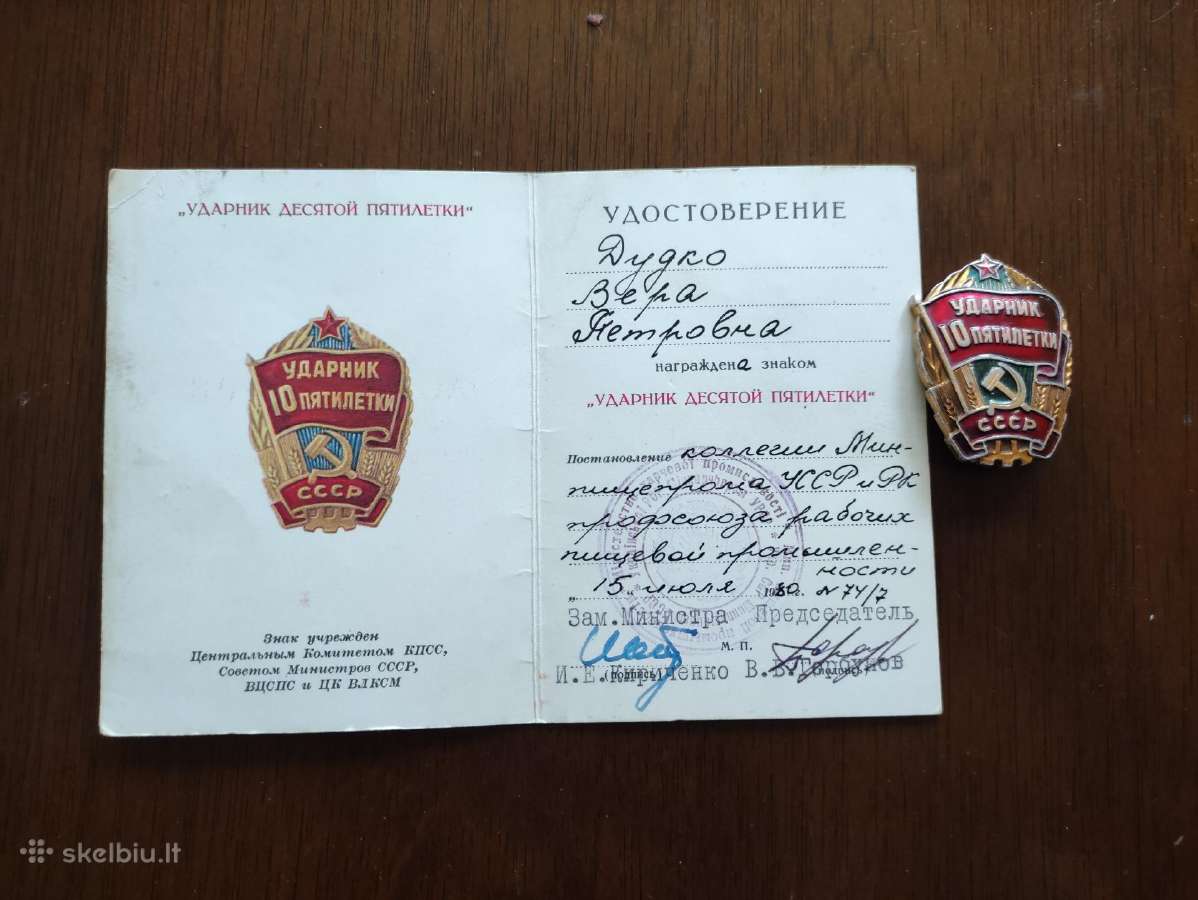 „УДАРНИК ДЕСЯТОЙ ПЯТИЛЕТКИ“
УДАРНИК
10 ПЯТИЛЕТКИ
СССР
Знак учрежден
Центральным Комитетом КПСС,
Советом Министров СССР,
ВЦСПС и ЦК ВЛКСМ
УДОСТОВЕРЕНИЕ
Дудко
Вера
Петровна
награждена знаком
„УДАРНИК ДЕСЯТОЙ ПЯТИЛЕТКИ“
Постановление коллегии Мин-
пищепрома УССР и РК
профсоюза рабочих
пищевой промышлен-
ности
„15„ июля 1980 г. N 74/7
Зам.Министра Председатель
М. П.
(подпись) (подпись)
И.Е.Кириченко В.В.Горохнов
УДАРНИК
10 ПЯТИЛЕТКИ
СССР
skelbiu.lt